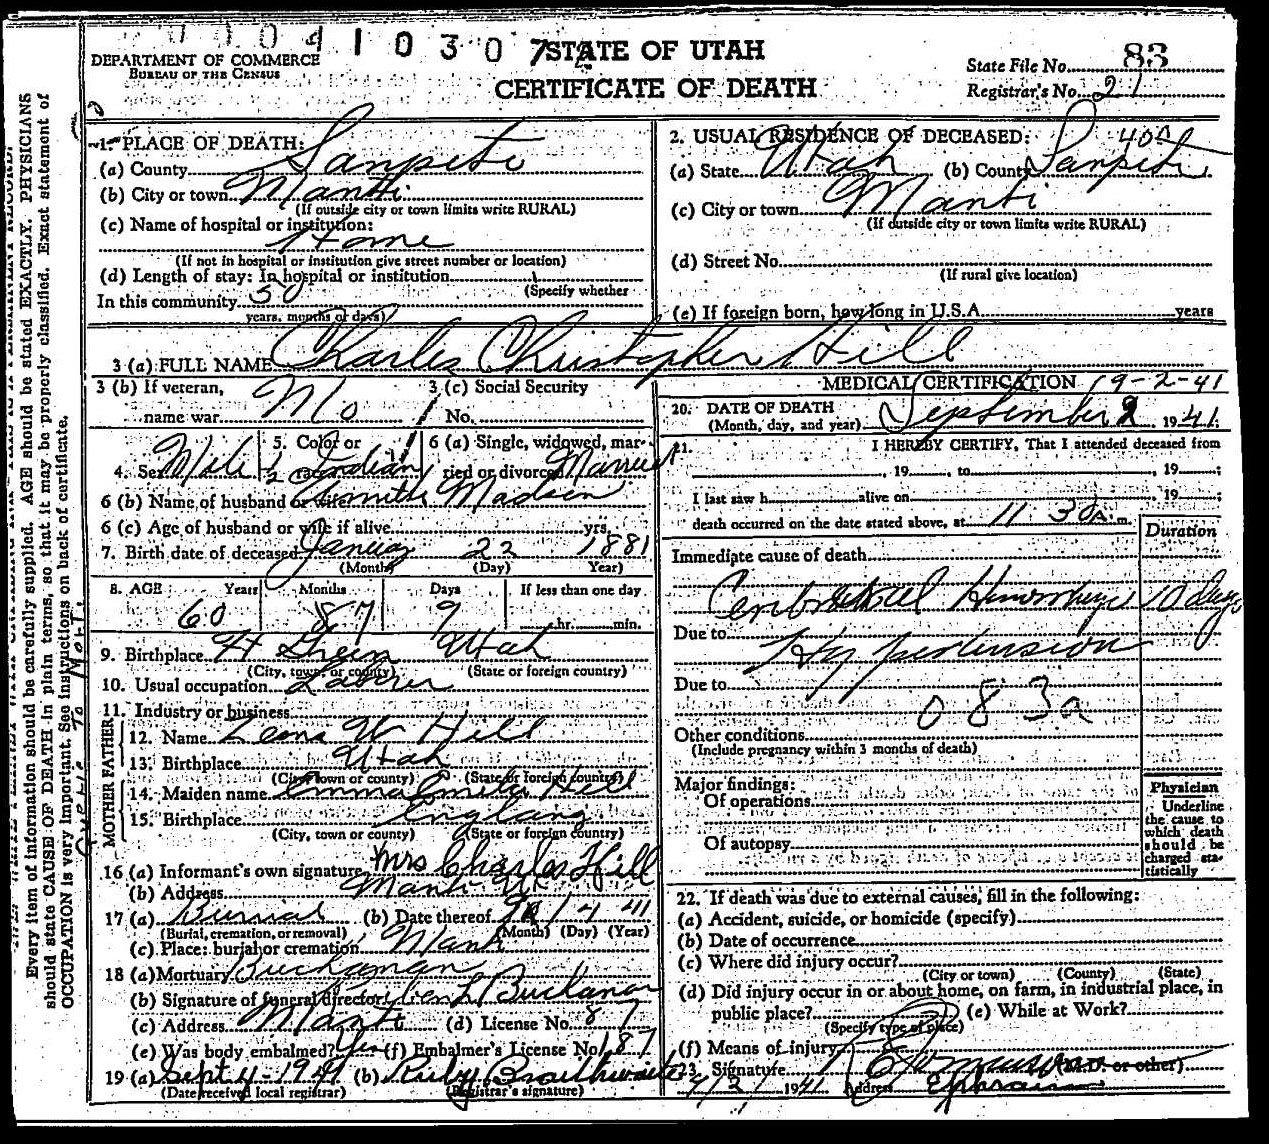 1 0 3 0 7
STATE OF UTAH
CERTIFICATE OF DEATH
DEPARTMENT OF COMMERCE
BUREAU OF THE CENSUS
State File No. 83
Registrar's No. 21
Every item of information should be carefully supplied. AGE should be stated EXACTLY. PHYSICIANS
should state CAUSE OF DEATH in plain terms, so that it may be properly classified. Exact statement of
OCCUPATION is very important. See instructions on back of certificate.
1. PLACE OF DEATH:
(a) County Sanpete
(b) City or town Manti
(If outside city or town limits write RURAL)
(c) Name of hospital or institution:
Home
(If not in hospital or institution give street number or location)
(d) Length of stay: In hospital or institution
(Specify whether
In this community 50
years, months or days)
2. USUAL RESIDENCE OF DECEASED:
(a) State Utah (b) County Sanpete
(c) City or town Manti
(If outside city or town limits write RURAL)
(d) Street No.
(If rural give location)
(e) If foreign born, how long in U.S.A. years
3 (a) FULL NAME Charles Christopher Hill
3 (b) If veteran, name war No
3 (c) Social Security No.
4. Sex Male 5. Color or race 1/2 Indian 6 (a) Single, widowed, married or divorced Married
6 (b) Name of husband or wife Madsen
6 (c) Age of husband or wife if alive yrs.
7. Birth date of deceased January 22 1881
(Month) (Day) Year)
8. AGE Years Months Days If less than one day
60 7 9 hr. min.
9. Birthplace Utah
(City, town, or county) (State or foreign country)
10. Usual occupation Laborer
11. Industry or business
FATHER
12. Name W Hill
13. Birthplace Utah
(City, town or county) (State or foreign country)
MOTHER
14. Maiden name Emma Hill
15. Birthplace England
(City, town or county) (State or foreign country)
16 (a) Informant's own signature Mrs Charles Hill
(b) Address Manti Ut
17 (a) Burrial (b) Date thereof 9 4 41
(Burial, cremation, or removal) (Month) (Day) (Year)
(c) Place: burial or cremation Manti
18 (a) Mortuary Buchanan
(b) Signature of funeral director Ruben L Buchanan
(c) Address Manti (d) License No. 87
(e) Was body embalmed? Yes (f) Embalmer's License No. 187
19 (a) Sept 4-1941 (b) Ruby Braithwaite
(Date received local registrar) (Registrar's signature)
MEDICAL CERTIFICATION 9-2-41
20. DATE OF DEATH
(Month, day, and year) September 2 1941
21. I HEREBY CERTIFY, That I attended deceased from
, 19 , to , 19 ;
I last saw h alive on , 19 ;
death occurred on the date stated above, at 11 30 a. m.
Duration
Immediate cause of death
Cerebral Hemorrhage 10 days
Due to Hypertension
Due to
083a
Other conditions
(Include pregnancy within 3 months of death)
Major findings:
Of operations
Of autopsy
Physician
Underline
the cause to
which death
should be
charged sta-
tistically
22. If death was due to external causes, fill in the following:
(a) Accident, suicide, or homicide (specify)
(b) Date of occurrence
(c) Where did injury occur?
(City or town) (County) (State)
(d) Did injury occur in or about home, on farm, in industrial place, in
public place? (e) While at Work?
(Specify type of place)
(f) Means of injury
23. Signature (M.D. or other)
1941 Address Ephraim